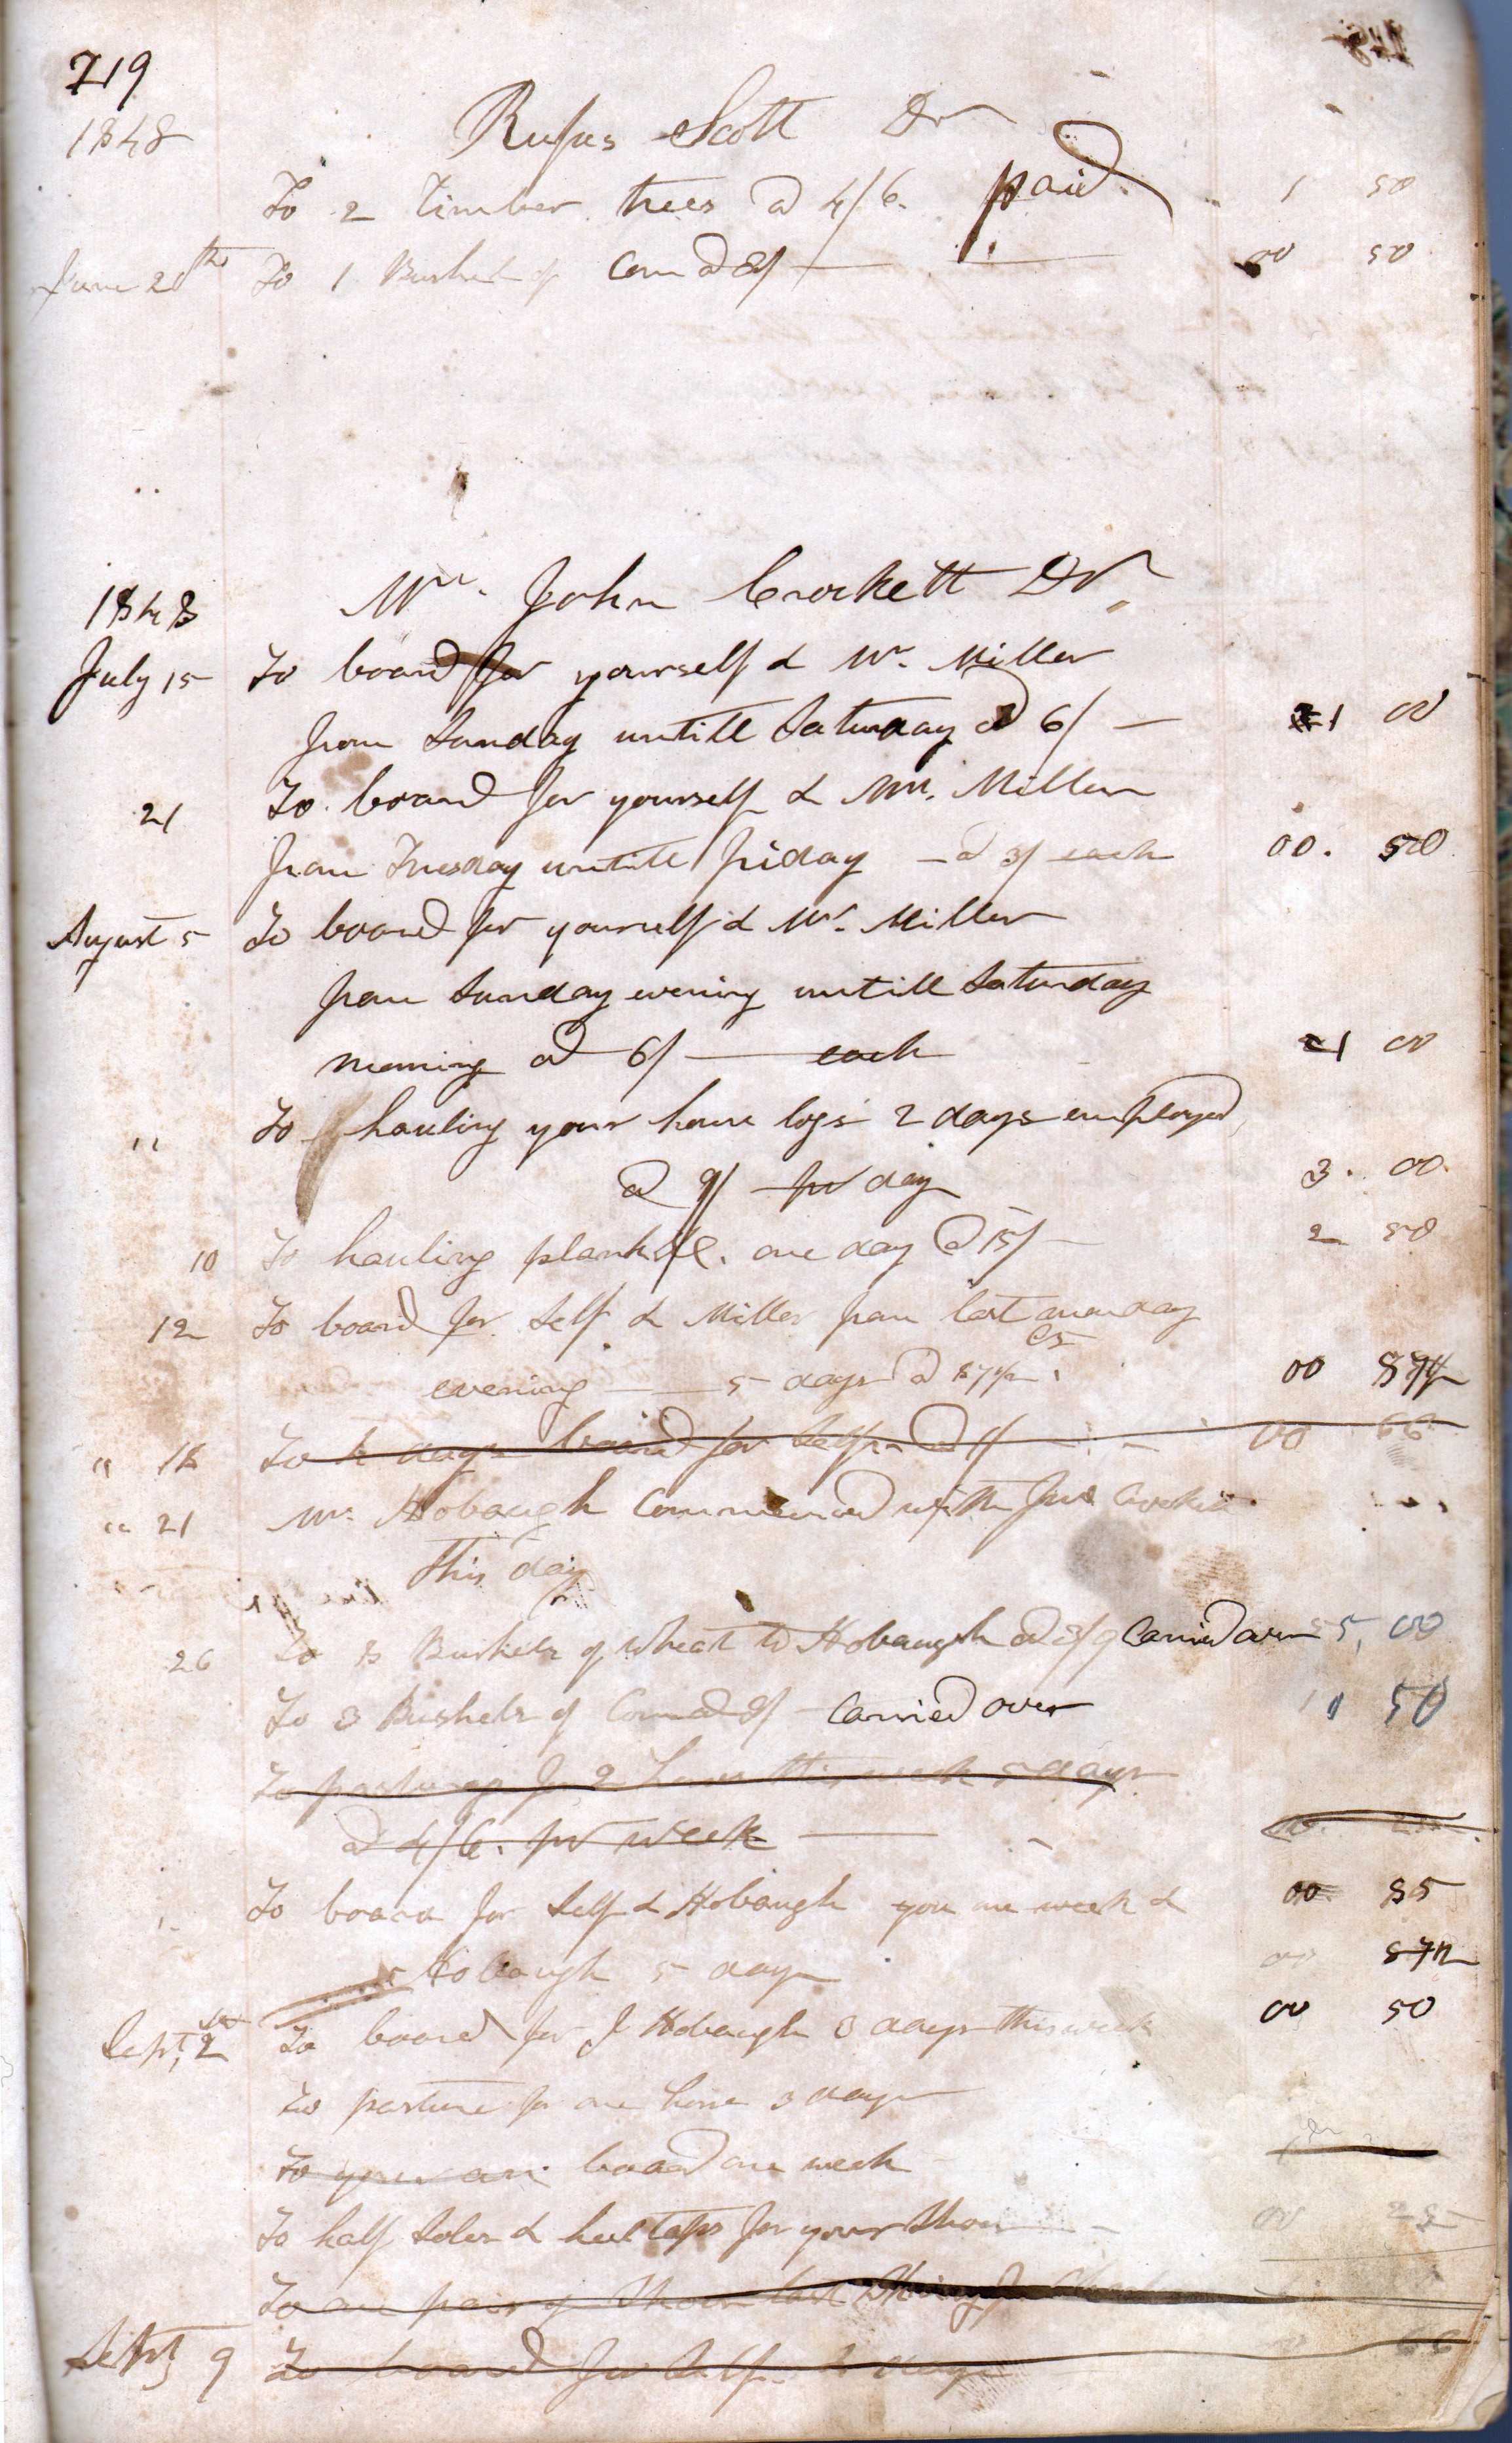 219
1848 Rufus Scott Dr
To 2 Timber trees @ 4/6. paid 1 50
June 20th To 1 Bushel of Corn @ 3/ — 00 50
1848 Mr. John Crockett Dr.
July 15 To board for yourself & Mr. Miller
from Sunday untill Saturday @ 6/ — 1 00
21 To board for yourself & Mr. Miller
from Tuesday untill friday — @ 3/ each 00. 50
August 5 To board for yourself & Mr. Miller
from Sunday evening untill Saturday
morning @ 6/ — each 1 00
" To hauling your house logs 2 days employed
@ 9/ pr day 3. 00.
10 To hauling plank &c. one day @ 15/ — 2 50
12 To board for Self & Miller from last monday
evening — 5 days @ 87½ cs 00 87½
" 18 To 4 days board for Self @ 1/ 00 66
" 21 Mr. Hobaugh Commenced with Jno Crockett
This day
26 To 8 Bushels of wheat to Hobaugh @ 3/9 Carried over 5, 00
To 3 Bushels of Corn @ 3/ — Carried over 1 50
To pasturage for 2 horses this week 5 days
@ 4/6. pr week —
To board for Self & Hobaugh you one week & 00 85
Hobaugh 5 days 00 87½
Sept. 2nd To board for J Hobaugh 3 days this week 00 50
To pasture for one horse 3 days
To your own board one week
To half Soles & heel taps for your Shoes 00 25
To one pair of Shoes last
Sept 9 To board for Self 4 days 66